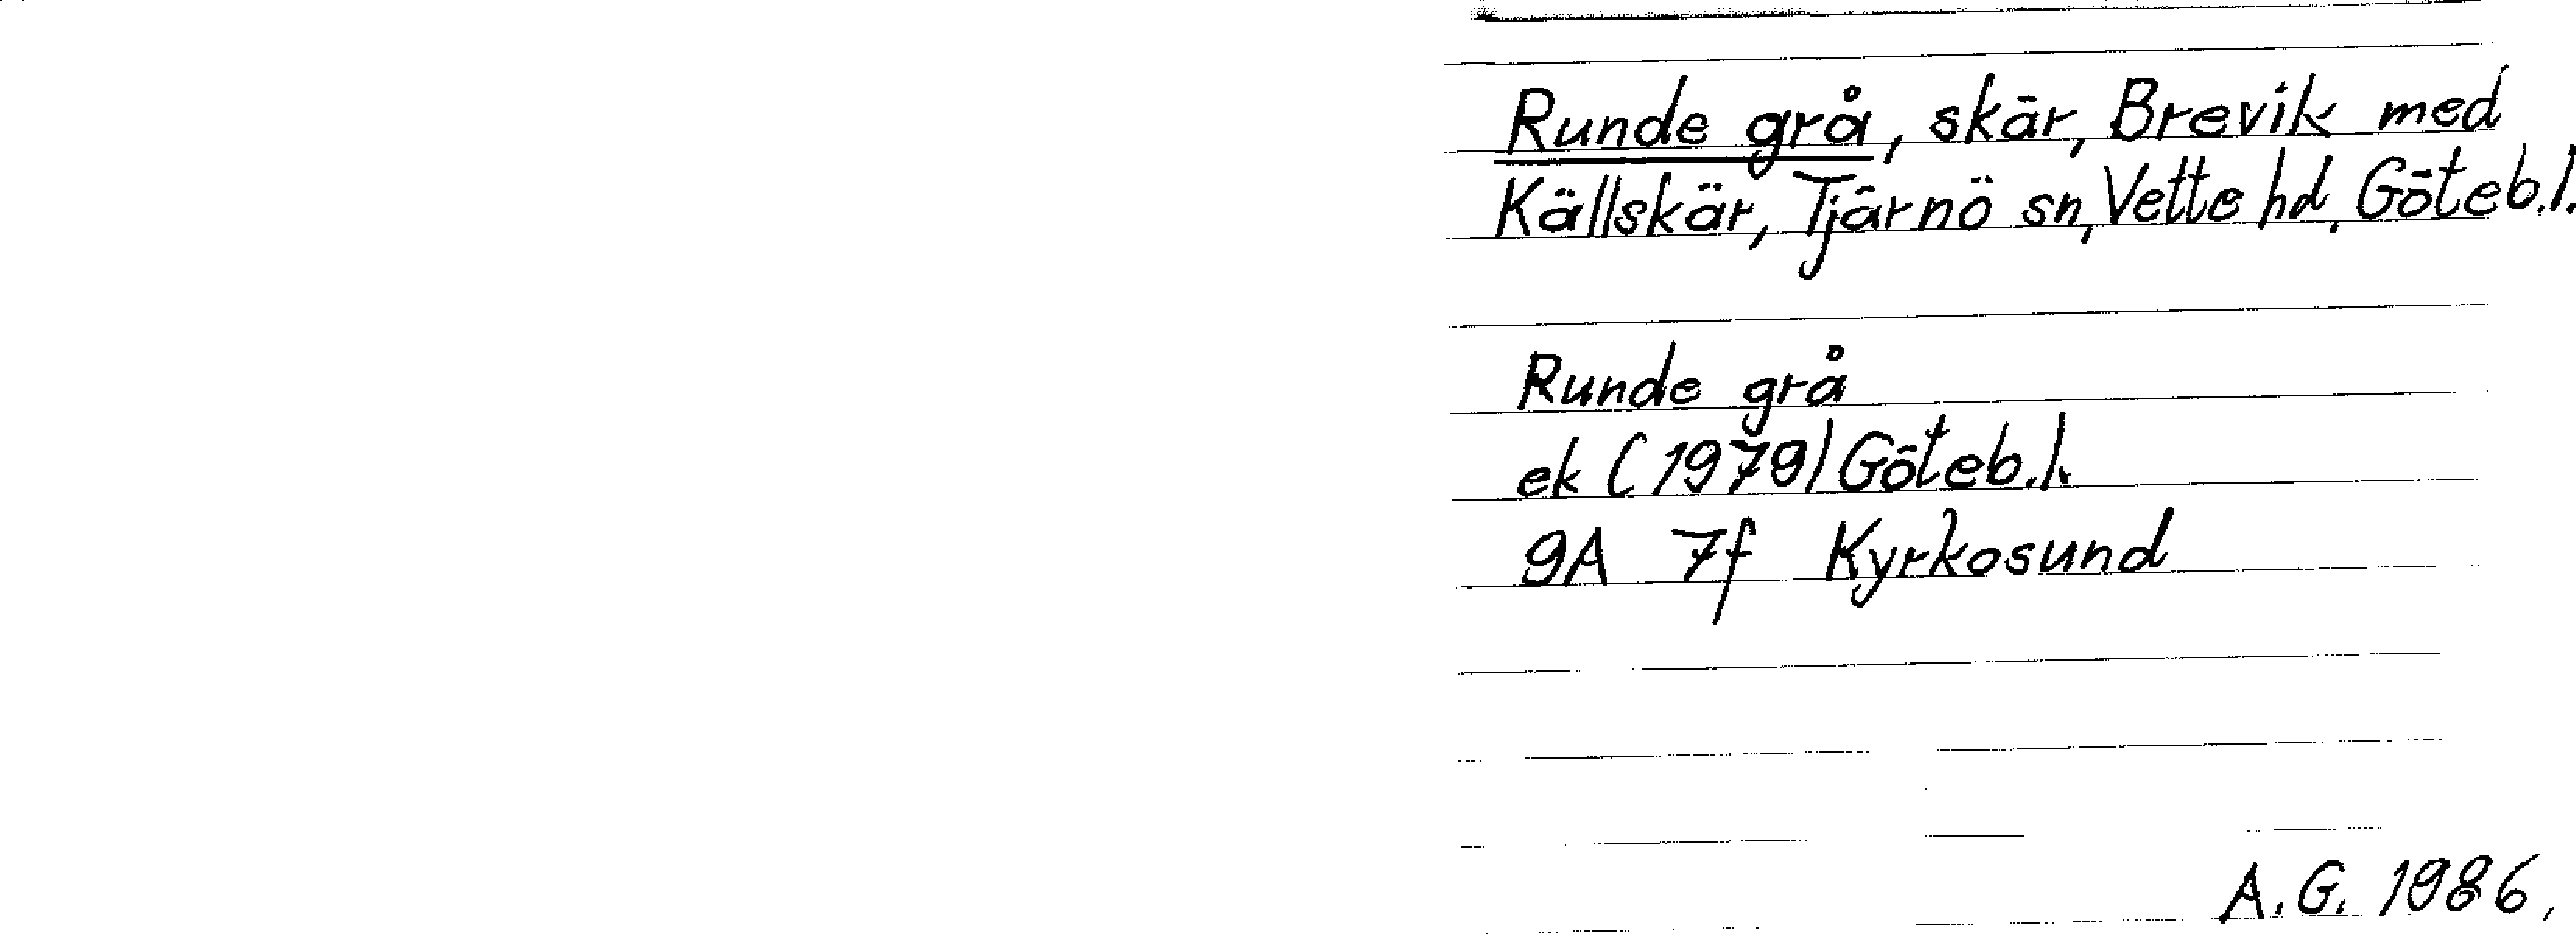 Runde grå, skär, Brevik med
Källskär, Tjärnö sn, Vette hd, Göteb.l.
Runde grå
ek (1979) Göteb.l.
9A 7f Kyrkosund
A.G. 1986.